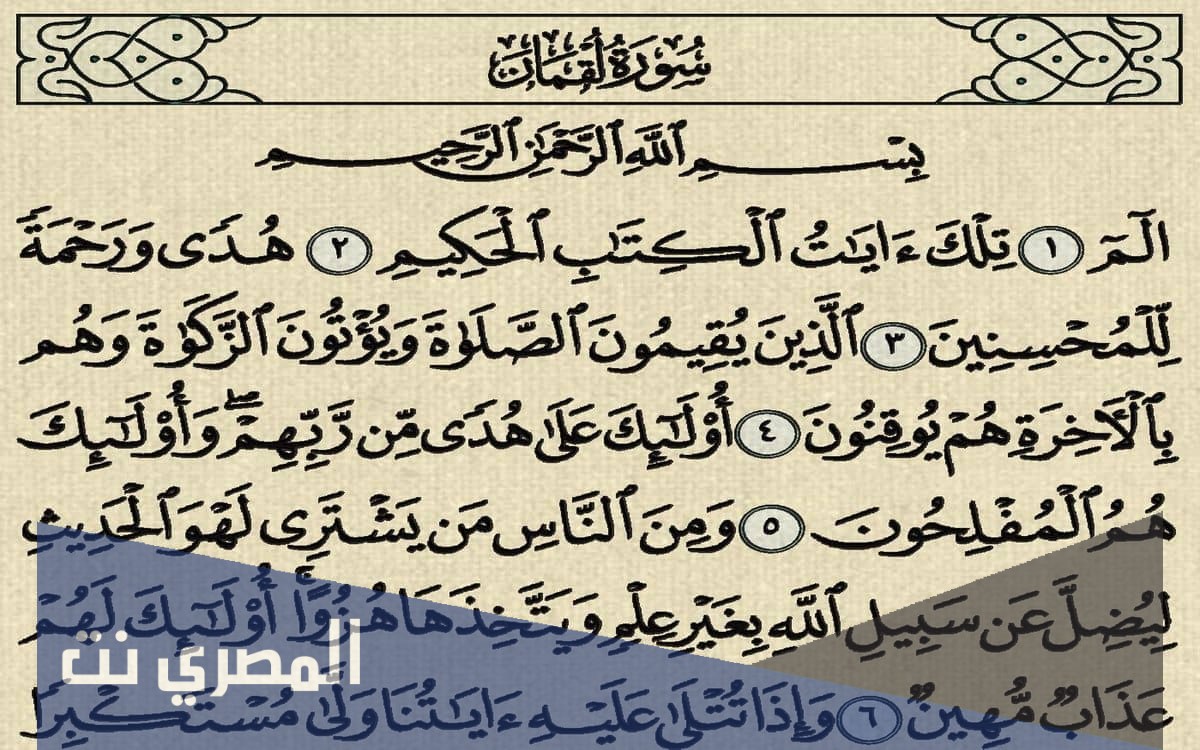 سُورَةُ لُقْمَانَ
بِسْمِ ٱللَّهِ ٱلرَّحْمَٰنِ ٱلرَّحِيمِ
الٓمٓ ١ تِلْكَ ءَايَٰتُ ٱلْكِتَٰبِ ٱلْحَكِيمِ ٢ هُدًى وَرَحْمَةً
لِّلْمُحْسِنِينَ ٣ ٱلَّذِينَ يُقِيمُونَ ٱلصَّلَوٰةَ وَيُؤْتُونَ ٱلزَّكَوٰةَ وَهُم
بِٱلْأَخِرَةِ هُمْ يُوقِنُونَ ٤ أُوْلَٰٓئِكَ عَلَىٰ هُدًى مِّن رَّبِّهِمْۖ وَأُوْلَٰٓئِكَ
هُمُ ٱلْمُفْلِحُونَ ٥ وَمِنَ ٱلنَّاسِ مَن يَشْتَرِى لَهْوَ ٱلْحَدِيثِ
لِيُضِلَّ عَن سَبِيلِ ٱللَّهِ بِغَيْرِ عِلْمٍ وَيَتَّخِذَهَا هُزُوًاۚ أُوْلَٰٓئِكَ لَهُمْ
المصري نت
عَذَابٌ مُّهِينٌ ٦ وَإِذَا تُتْلَىٰ عَلَيْهِ ءَايَٰتُنَا وَلَّىٰ مُسْتَكْبِرًا